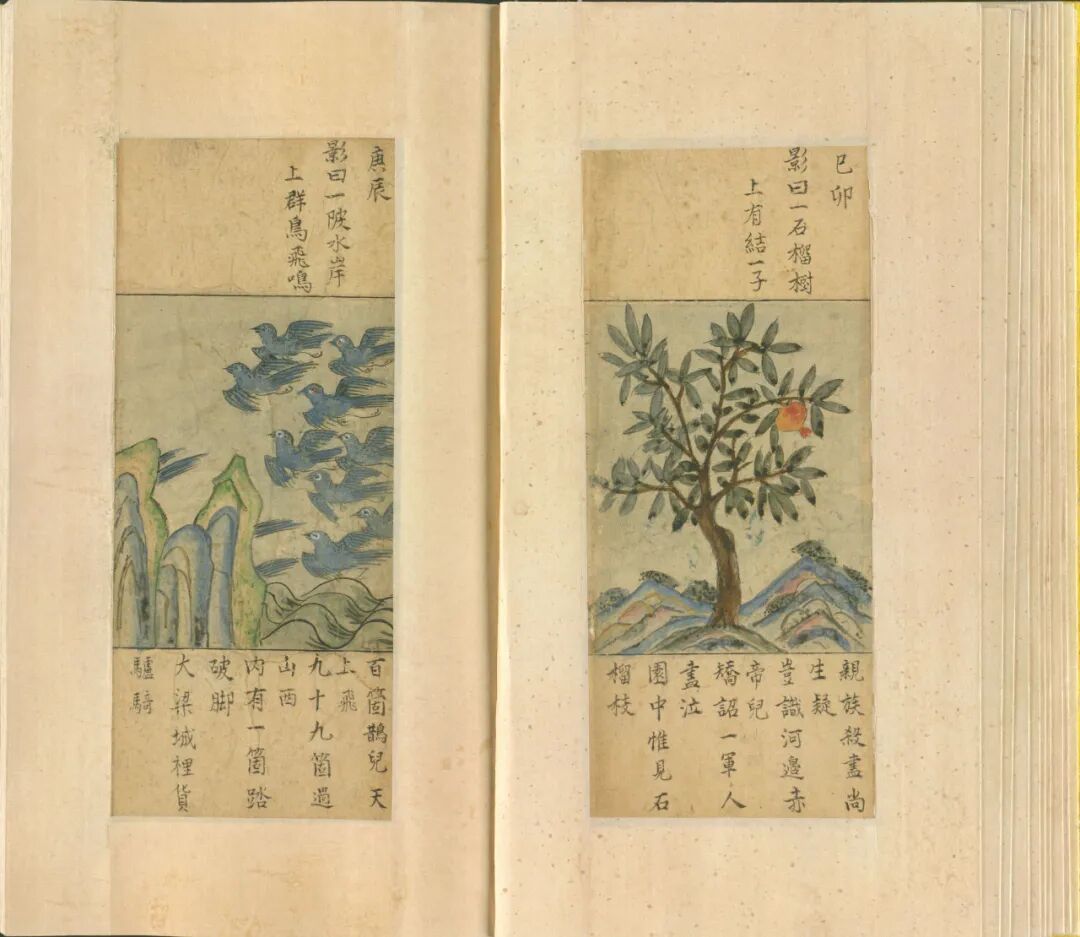 己卯
影曰一石榴樹
上有結一子
親族殺盡尚
生疑
豈識河邊赤
帝兒
矯詔一軍人
盡泣
園中惟見石
榴枝
庚辰
影曰一陂水岸
上群鳥飛鳴
百箇鵲兒天
上飛
九十九箇過
山西
內有一箇踏
破脚
大梁城裡貨
驢騎